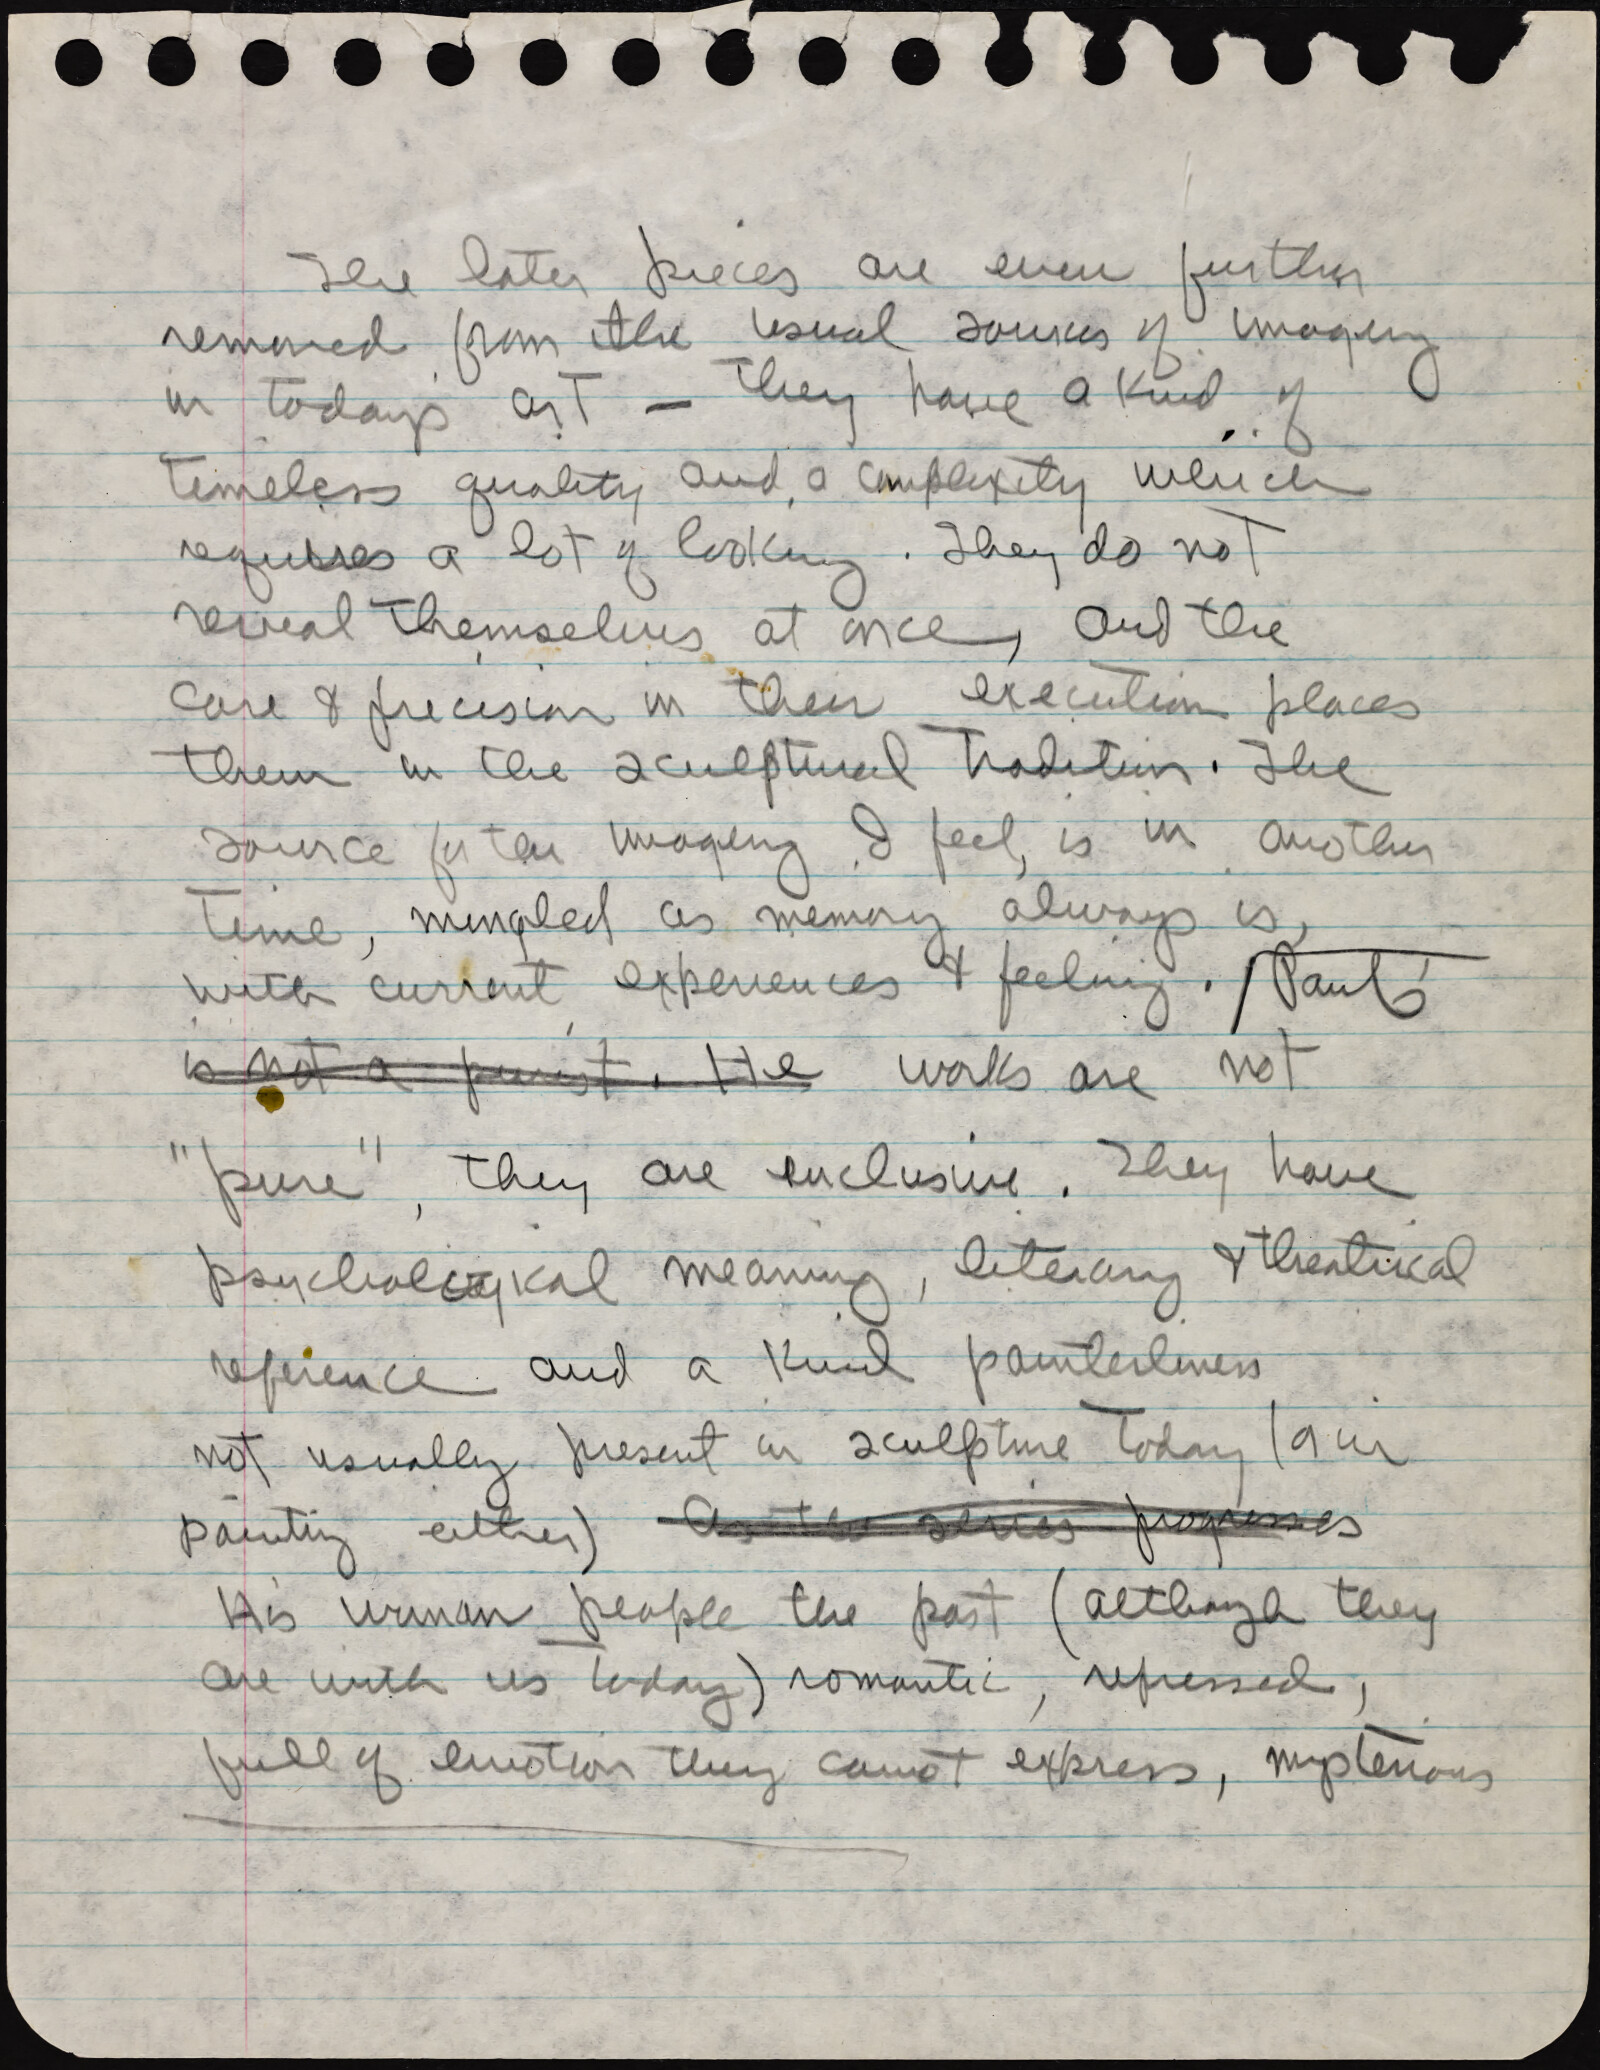 The later pieces are even further
removed from the usual sources of imagery
in today's art — they have a kind of
timeless quality and a complexity which
requires a lot of looking. They do not
reveal themselves at once, and the
care & precision in their execution places
them in the sculptural tradition. The
source for the imagery I feel, is in another
time, mingled as memory always is,
with current experiences & feeling. / Paul's
is not a purist. He works are not
"pure", they are inclusive. They have
psychological meaning, literary & theatrical
reference and a kind painterliness
not usually present in sculpture today (or in
painting either) As the series progresses
His woman people the past (although they
are with us today) romantic, repressed,
full of emotion they cannot express, mysterious